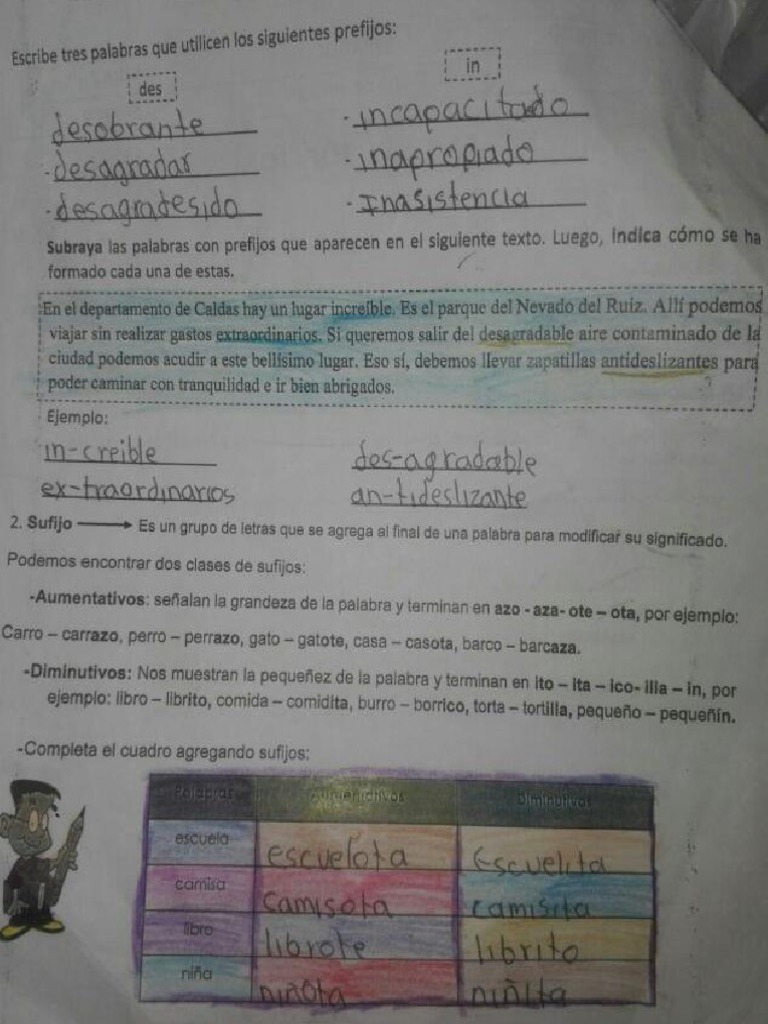 Escribe tres palabras que utilicen los siguientes prefijos:
des in
desobrante -incapacitado
-desagradar -inapropiado
-desagradesido -Inasistencia
Subraya las palabras con prefijos que aparecen en el siguiente texto. Luego, indica cómo se ha
formado cada una de estas.
En el departamento de Caldas hay un lugar increíble. Es el parque del Nevado del Ruiz. Allí podemos
viajar sin realizar gastos extraordinarios. Si queremos salir del desagradable aire contaminado de la
ciudad podemos acudir a este bellísimo lugar. Eso sí, debemos llevar zapatillas antideslizantes para
poder caminar con tranquilidad e ir bien abrigados.
Ejemplo:
in-creible des-agradable
ex-traordinarios an-tideslizante
2. Sufijo Es un grupo de letras que se agrega al final de una palabra para modificar su significado.
Podemos encontrar dos clases de sufijos:
-Aumentativos: señalan la grandeza de la palabra y terminan en azo - aza- ote – ota, por ejemplo:
Carro – carrazo, perro – perrazo, gato – gatote, casa – casota, barco – barcaza.
-Diminutivos: Nos muestran la pequeñez de la palabra y terminan en ito – ita – ico- illa – in, por
ejemplo: libro – librito, comida – comidita, burro – borrico, torta – tortilla, pequeño – pequeñín.
-Completa el cuadro agregando sufijos:
Palabras Aumentativos Diminutivos
escuela escuelota Escuelita
camisa camisota camisita
libro librote librito
niña niñota niñita